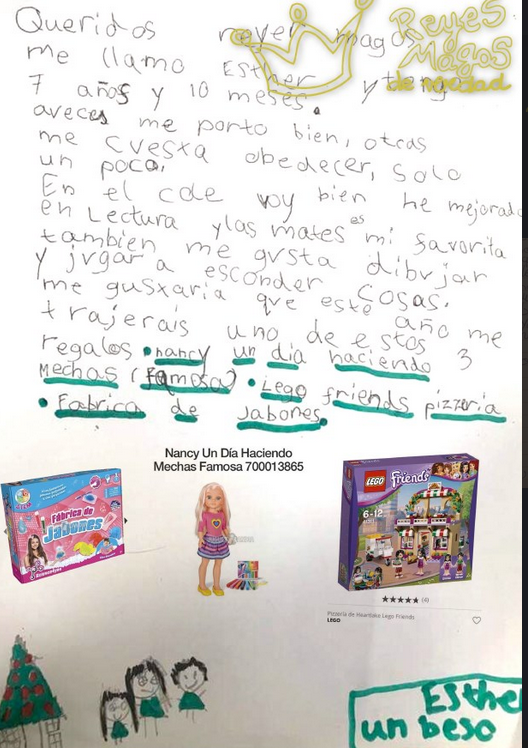 Queridos reyes magos
Reyes
Magos
de verdad
me llamo Esther y teng
7 años y 10 meses.
aveces me porto bien, otras
me cvesta obedecer, solo
un poco.
En el cole voy bien he mejorado
en Lectura y las mates es mi favorita
tambien me gvsta dibvjar
y jvgar a esconder cosas.
me gustaria que este año me
trajerais uno de estos 3
regalos • nancy un dia haciendo
Mechas (Famosa) • Lego friends pizzeria
• Fabrica de Jabones.
Nancy Un Día Haciendo
Mechas Famosa 700013865
Fábrica de
Jabones
LEGO Friends
6-12
★★★★★ (4)
Pizzería de Heartlake Lego Friends
LEGO
Esthe
un beso